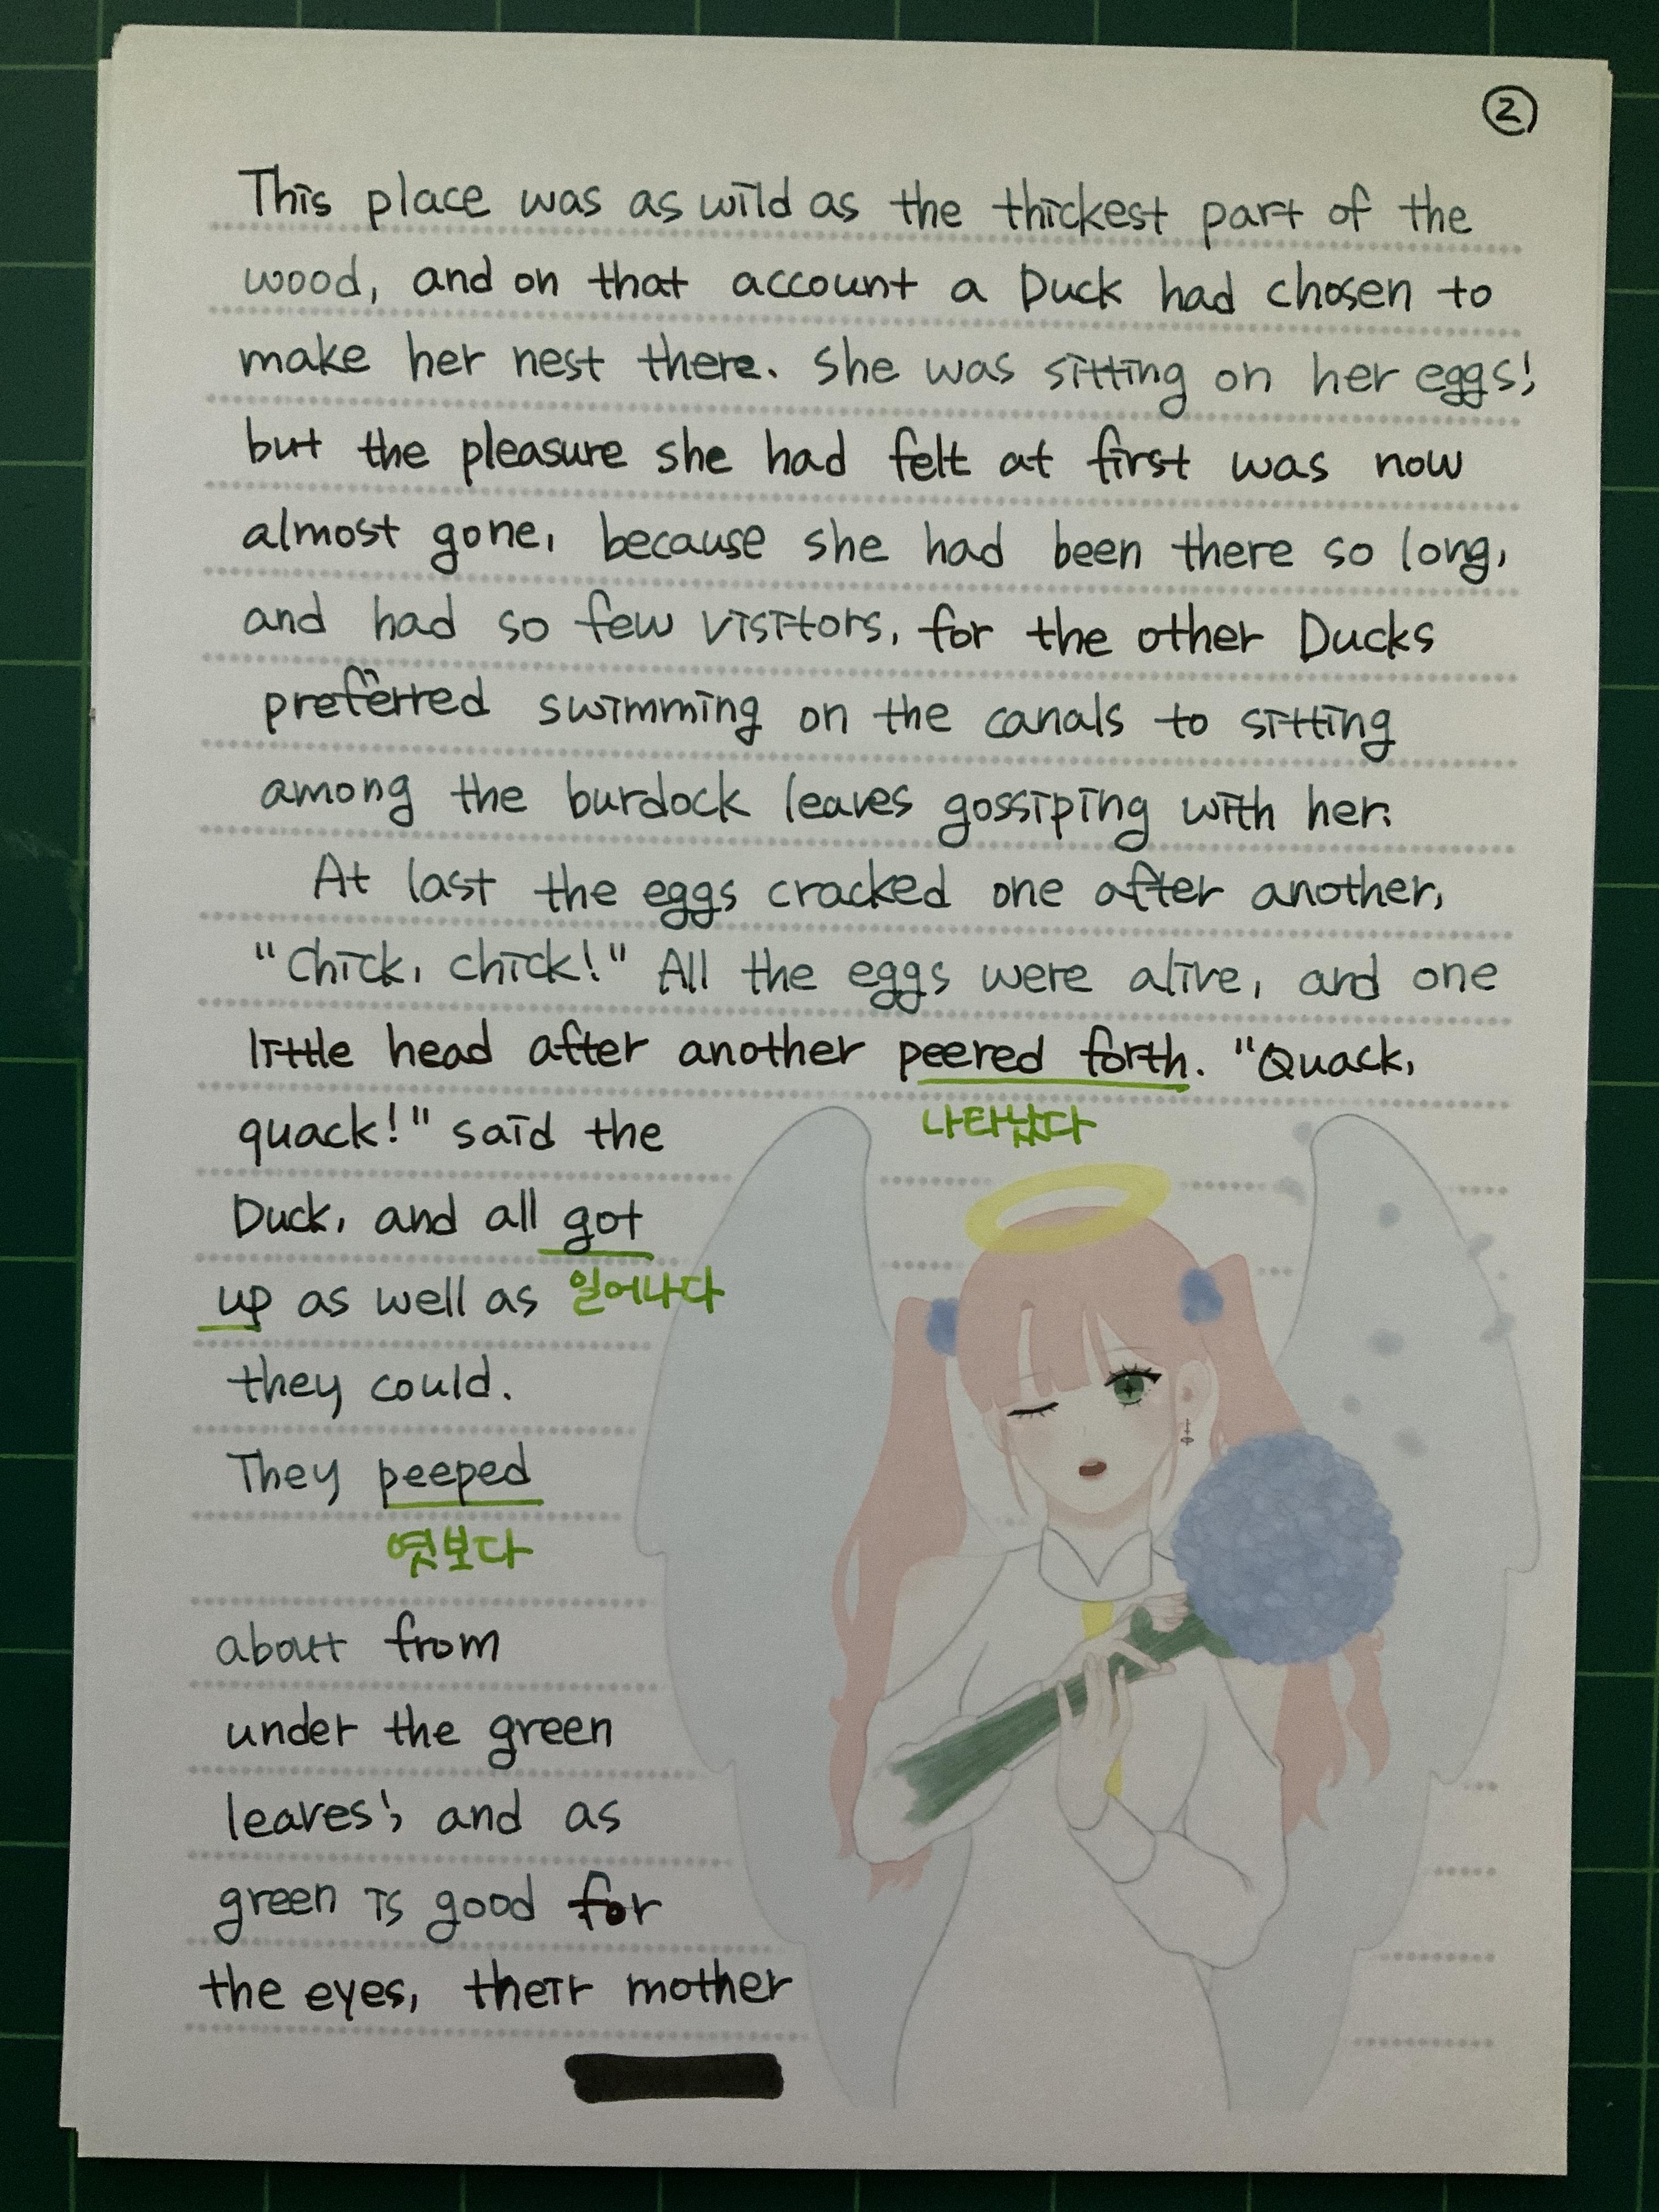 ②
This place was as wild as the thickest part of the
wood, and on that account a Duck had chosen to
make her nest there. She was sitting on her eggs;
but the pleasure she had felt at first was now
almost gone, because she had been there so long,
and had so few visitors, for the other Ducks
preferred swimming on the canals to sitting
among the burdock leaves gossiping with her.
At last the eggs cracked one after another,
"Chick, chick!" All the eggs were alive, and one
little head after another peered forth. "Quack,
나타났다
quack!" said the
Duck, and all got
up as well as 일어나다
they could.
They peeped
엿보다
about from
under the green
leaves; and as
green is good for
the eyes, their mother